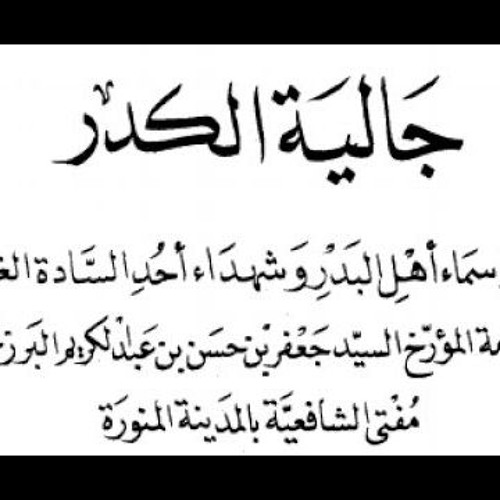 جَالِيَةُ الكَدَر
سمَاء أَهْلِ البَدْرِ وَشهدَاء أُحُدِ السَّادة الغ
مة المؤرّخ السيّد جَعْفر بْن حَسَن بن عَبدالكريم البَرزن
مُفْتى الشافعيَّة بالمدَينة المنورَة